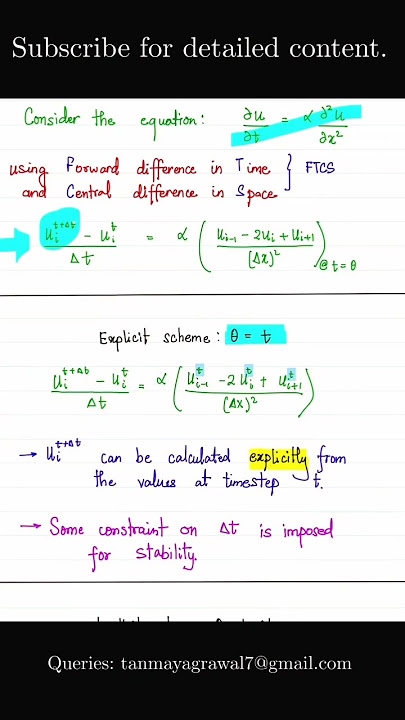 Subscribe for detailed content.
Consider the equation: ∂u/∂t = α ∂²u/∂x²
using Forward difference in Time } FTCS
and Central difference in Space
(uᵢᵗ⁺ᐞᵗ - uᵢᵗ)/Δt = α ((uᵢ₋₁ - 2uᵢ + uᵢ₊₁)/(Δx)²) @ t = θ
Explicit scheme: θ = t
(uᵢᵗ⁺ᐞᵗ - uᵢᵗ)/Δt = α ((uᵢ₋₁ᵗ - 2uᵢᵗ + uᵢ₊₁ᵗ)/(Δx)²)
→ uᵢᵗ⁺ᐞᵗ can be calculated explicitly from
the values at timestep t.
→ Some constraint on Δt is imposed
for stability.
Queries: tanmayagrawal7@gmail.com